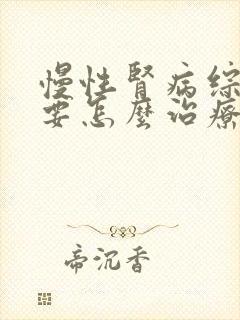 慢性腎病綜
要怎麼治療
帝沉香